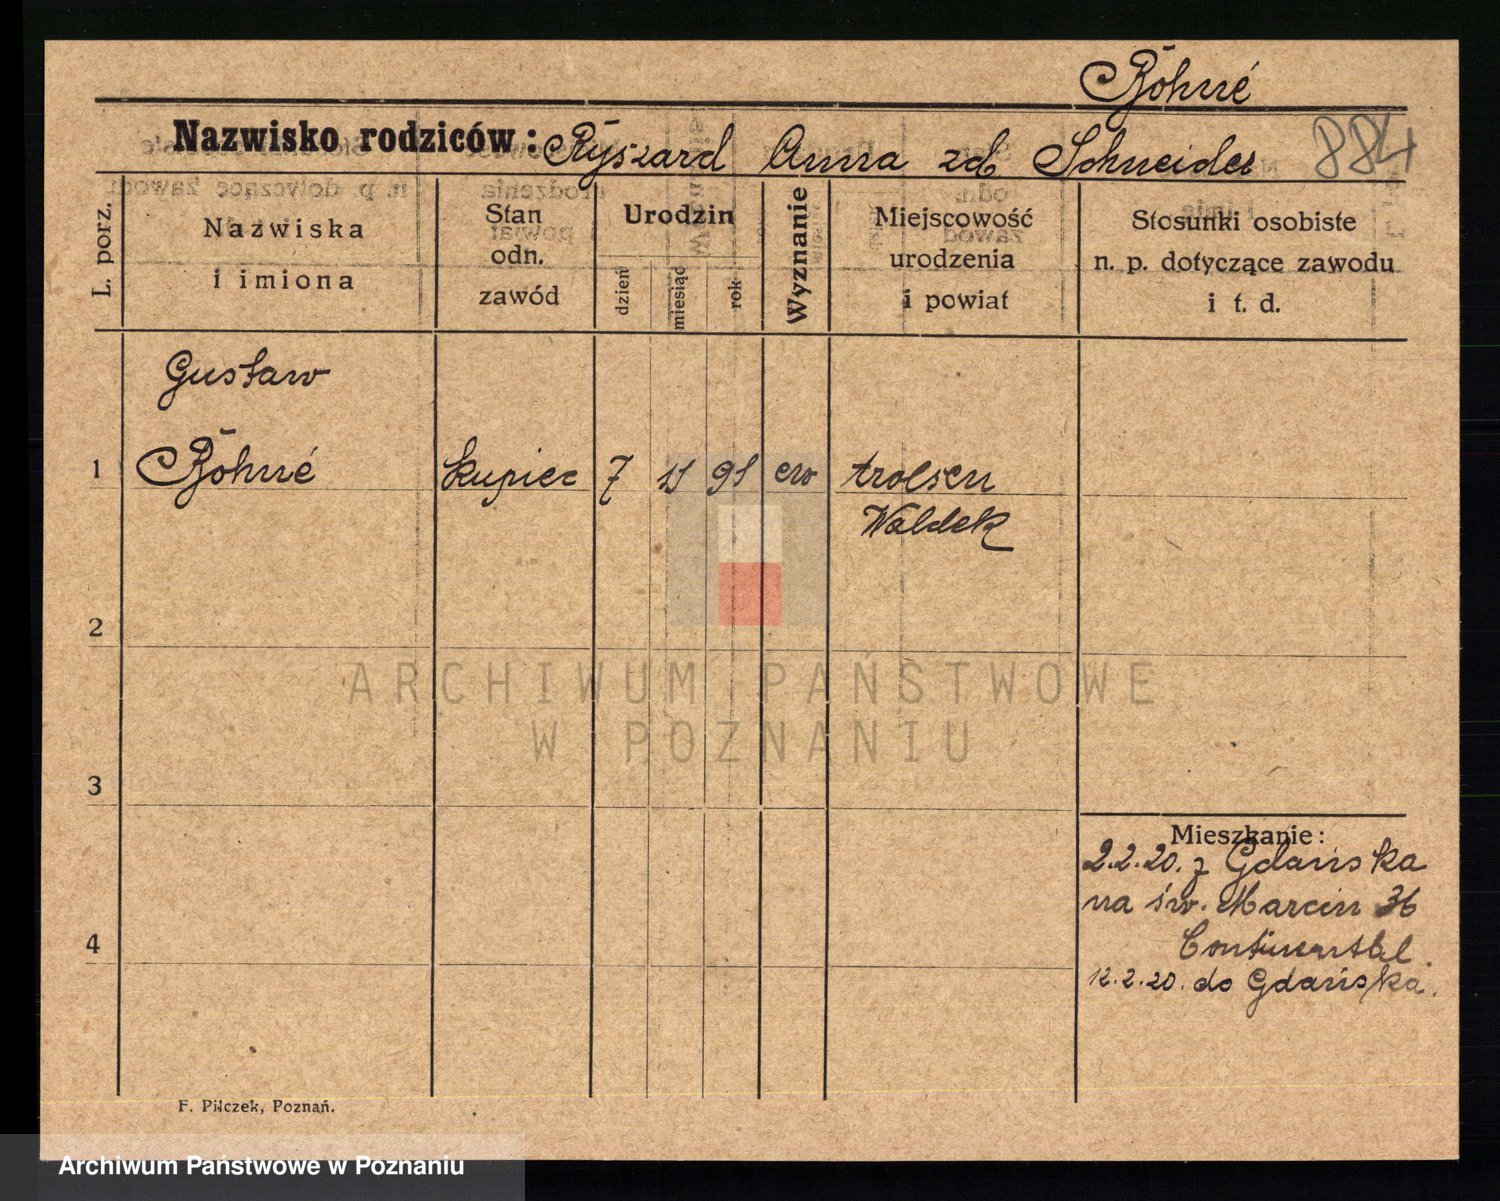 Böhné
Nazwisko rodziców: Ryszard Anna zd. Schneider
884
L. porz.
Nazwiska
i imiona
Stan
odn.
zawód
Urodzin
dzień
miesiąc
rok
Wyznanie
Miejscowość
urodzenia
i powiat
Stosunki osobiste
n. p. dotyczące zawodu
i t. d.
Gustaw
1 Böhné kupiec 7 11 91 ew arolsen
Waldek
2
ARCHIWUM PAŃSTWOWE
W POZNANIU
3
Mieszkanie:
2.2.20. z Gdańska
na św. Marcin 36
4 Continental.
12.2.20. do Gdańska.
F. Pilczek, Poznań.
Archiwum Państwowe w Poznaniu